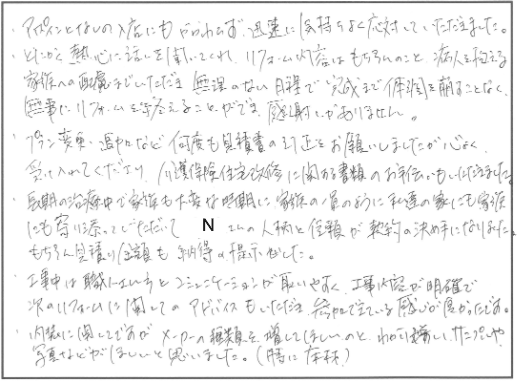 ・アポイントなしの入店にもかかわらず、迅速に気持ちよく応対していただきました。
・とにかく熱心に話しを聞いてくれ、リフォーム内容はもちろんのこと、病人を抱える
家族への配慮までいただき 無理のない日程で完成まで体調を崩すことなく、
無事にリフォームを終えることができ、感謝しかありません。
・プラン変更・追加など何度も見積書の訂正をお願いしましたが心よく
受け入れてくださり、介護保険住宅改修に関する書類のお手伝いもいただきました。
・長期の治療中で家族も大変な時期に家族の一員のように私達の家にも家族
にも寄り添っていただいて N さんの人柄と信頼が契約の決め手になりました。
もちろん見積り金額も納得の提示でした。
・工事中は職人さんたちとコミュニケーションが取りやすく、工事内容が明確で
次のリフォームに関してのアドバイスもいただき、参加できている感じが良かったです。
・内装に関してですが メーカーの種類を増してほしいのと、わかり易いサンプルや
写真などがほしいと思いました。(特に床材)